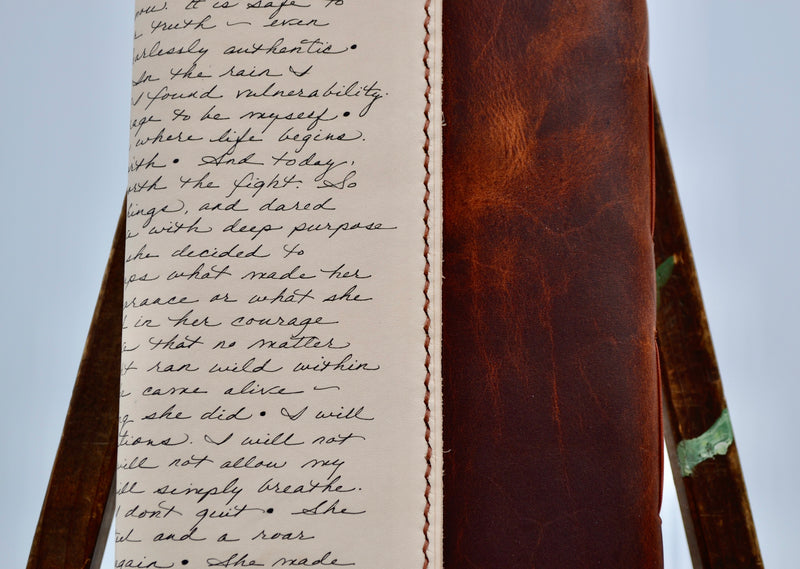 you. It is safe to
truth ~ even
fearlessly authentic •
In the rain I
I found vulnerability.
to be myself •
where life begins.
• And today,
worth the fight. So
things, and dared
with deep purpose
she decided to
what made her
or what she
in her courage
that no matter
ran wild within
came alive ~
she did • I will
I will not
will not allow my
will simply breathe.
don't quit • She
and a roar
again • She made